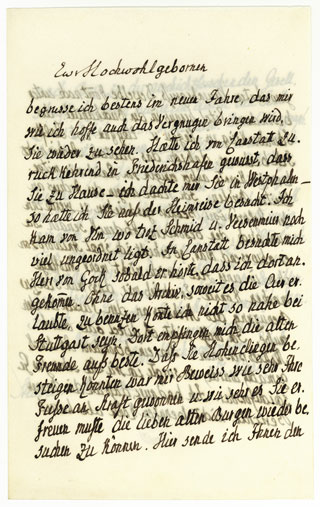 Ew. Hochwohlgebornen
begrüsse ich bestens im neuen Jahre, das mir
wie ich hoffe auch das Vergnügen bringen wird,
Sie wieder zu sehen. Hätte ich von Canstat zu
rück kehrend in Friedrichshafen gewusst, dass
Sie zu Hause – ich dachte mir Sie in Westphalen –
so hätte ich Sie auf der Heimreise besucht. Ich
kam von Ulm wo bei Schmid u. Veesenmeier noch
viel ungeordnet ligt. In Canstatt besuchte mich
Herr von Gock sobald er hörte, dass ich dort an.
gekomen. Ohne das Archiv, soweit es die Cur er.
laubte, zu benutzen konte ich nicht so nahe bei
Stuttgart seyn. Dort empfingen mich die alten
Freunde aufs beste. Daß Sie Hohenklingen be.
steigen konnten war mir Beweiss wie sehr Ihre
Füsse an Kraft gewonnen u. wie sehr es Sie er.
freuen mußte die lieben alten Burgen wieder be.
suchen zu können. Hier sende ich Ihnen den